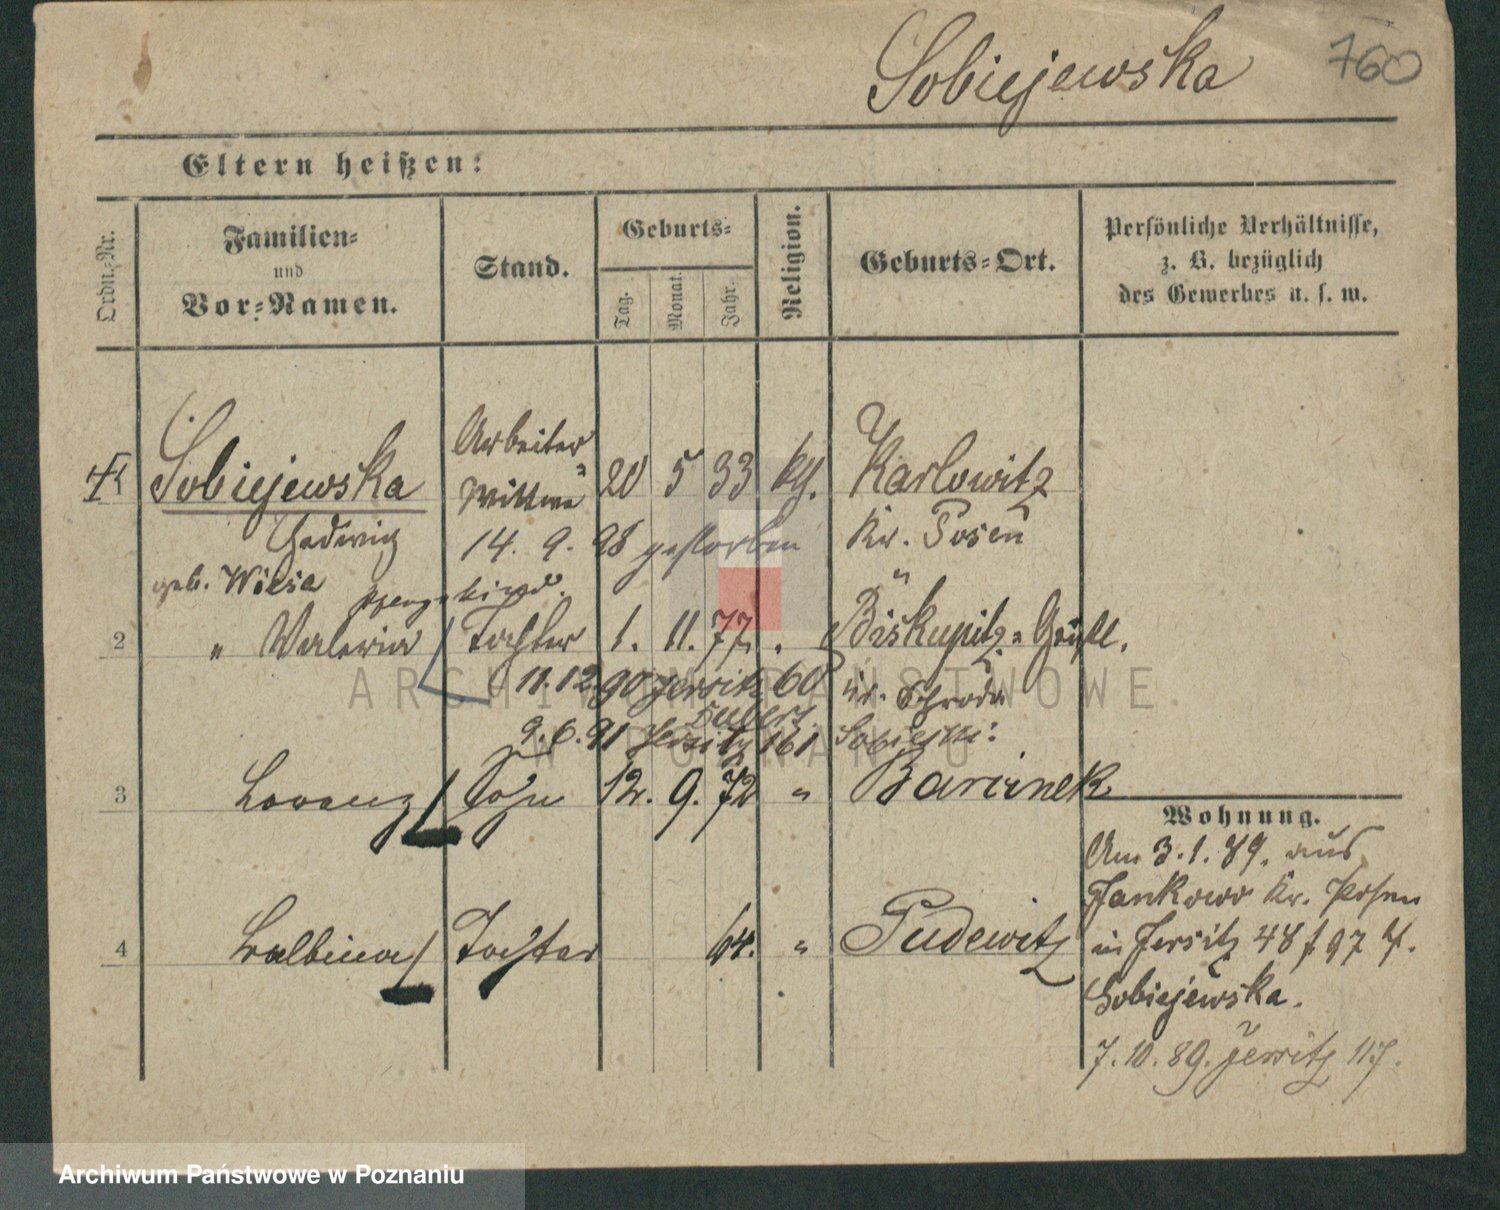 Sobiejewska 760
Eltern heißen:
Ordn.-Nr.
Familien-
und
Vor-Namen.
Stand.
Geburts-
Tag. Monat. Jahr.
Religion.
Geburts-Ort.
Persönliche Verhältnisse,
z. B. bezüglich
des Gewerbes u. s. w.
Arbeiter
Sobiejewska Wittwe 20 5 33 kth. Karlowitz
Hedwig 14. 9. 98 gestorben Kr. Posen
geb. Wiesa
2 " Valeria Tochter 1. 11. 77 " Biskupitz-
11. 12. 90 Jersitz 60 Kr. Schroda
9. 6. 91 Jersitz 161
3 Lorenz Sohn 12. 9. 72 " Barcinek
4 Balbina Tochter 64. " Pudewitz
Wohnung.
Am 3. 1. 89. aus
Jankowo Kr. Posen
in Jersitz 48
Sobiejewska.
7. 10. 89. Jersitz 117.
ARCHIWUM PAŃSTWOWE
W POZNANIU
Archiwum Państwowe w Poznaniu